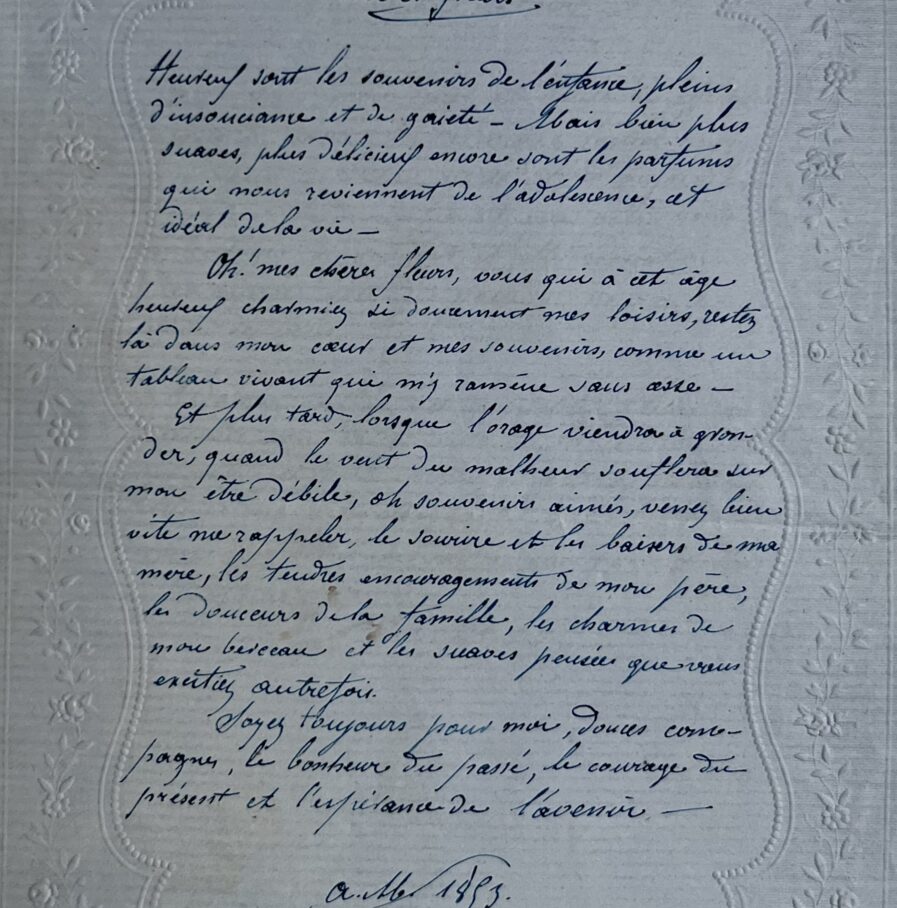 Heureux sont les souvenirs de l'enfance, pleins
d'insouciance et de gaieté – Mais bien plus
suaves, plus délicieux encore sont les parfums
qui nous reviennent de l'adolescence, cet
idéal de la vie –
Oh! mes chères fleurs, vous qui à cet âge
heureux charmiez si doucement mes loisirs, restez
là dans mon cœur et mes souvenirs, comme un
tableau vivant qui m'y ramène sans cesse –
Et plus tard, lorsque l'orage viendra à gron-
der, quand le vent du malheur soufflera sur
mon être débile, oh souvenirs aimés, venez bien
vite me rappeler, le sourire et les baisers de ma
mère, les tendres encouragements de mon père,
les douceurs de la famille, les charmes de
mon berceau et les suaves pensées que vous
excitiez autrefois.
Soyez toujours pour moi, douces com-
pagnes, le bonheur du passé, le courage du
présent et l'espérance de l'avenir –
1853.